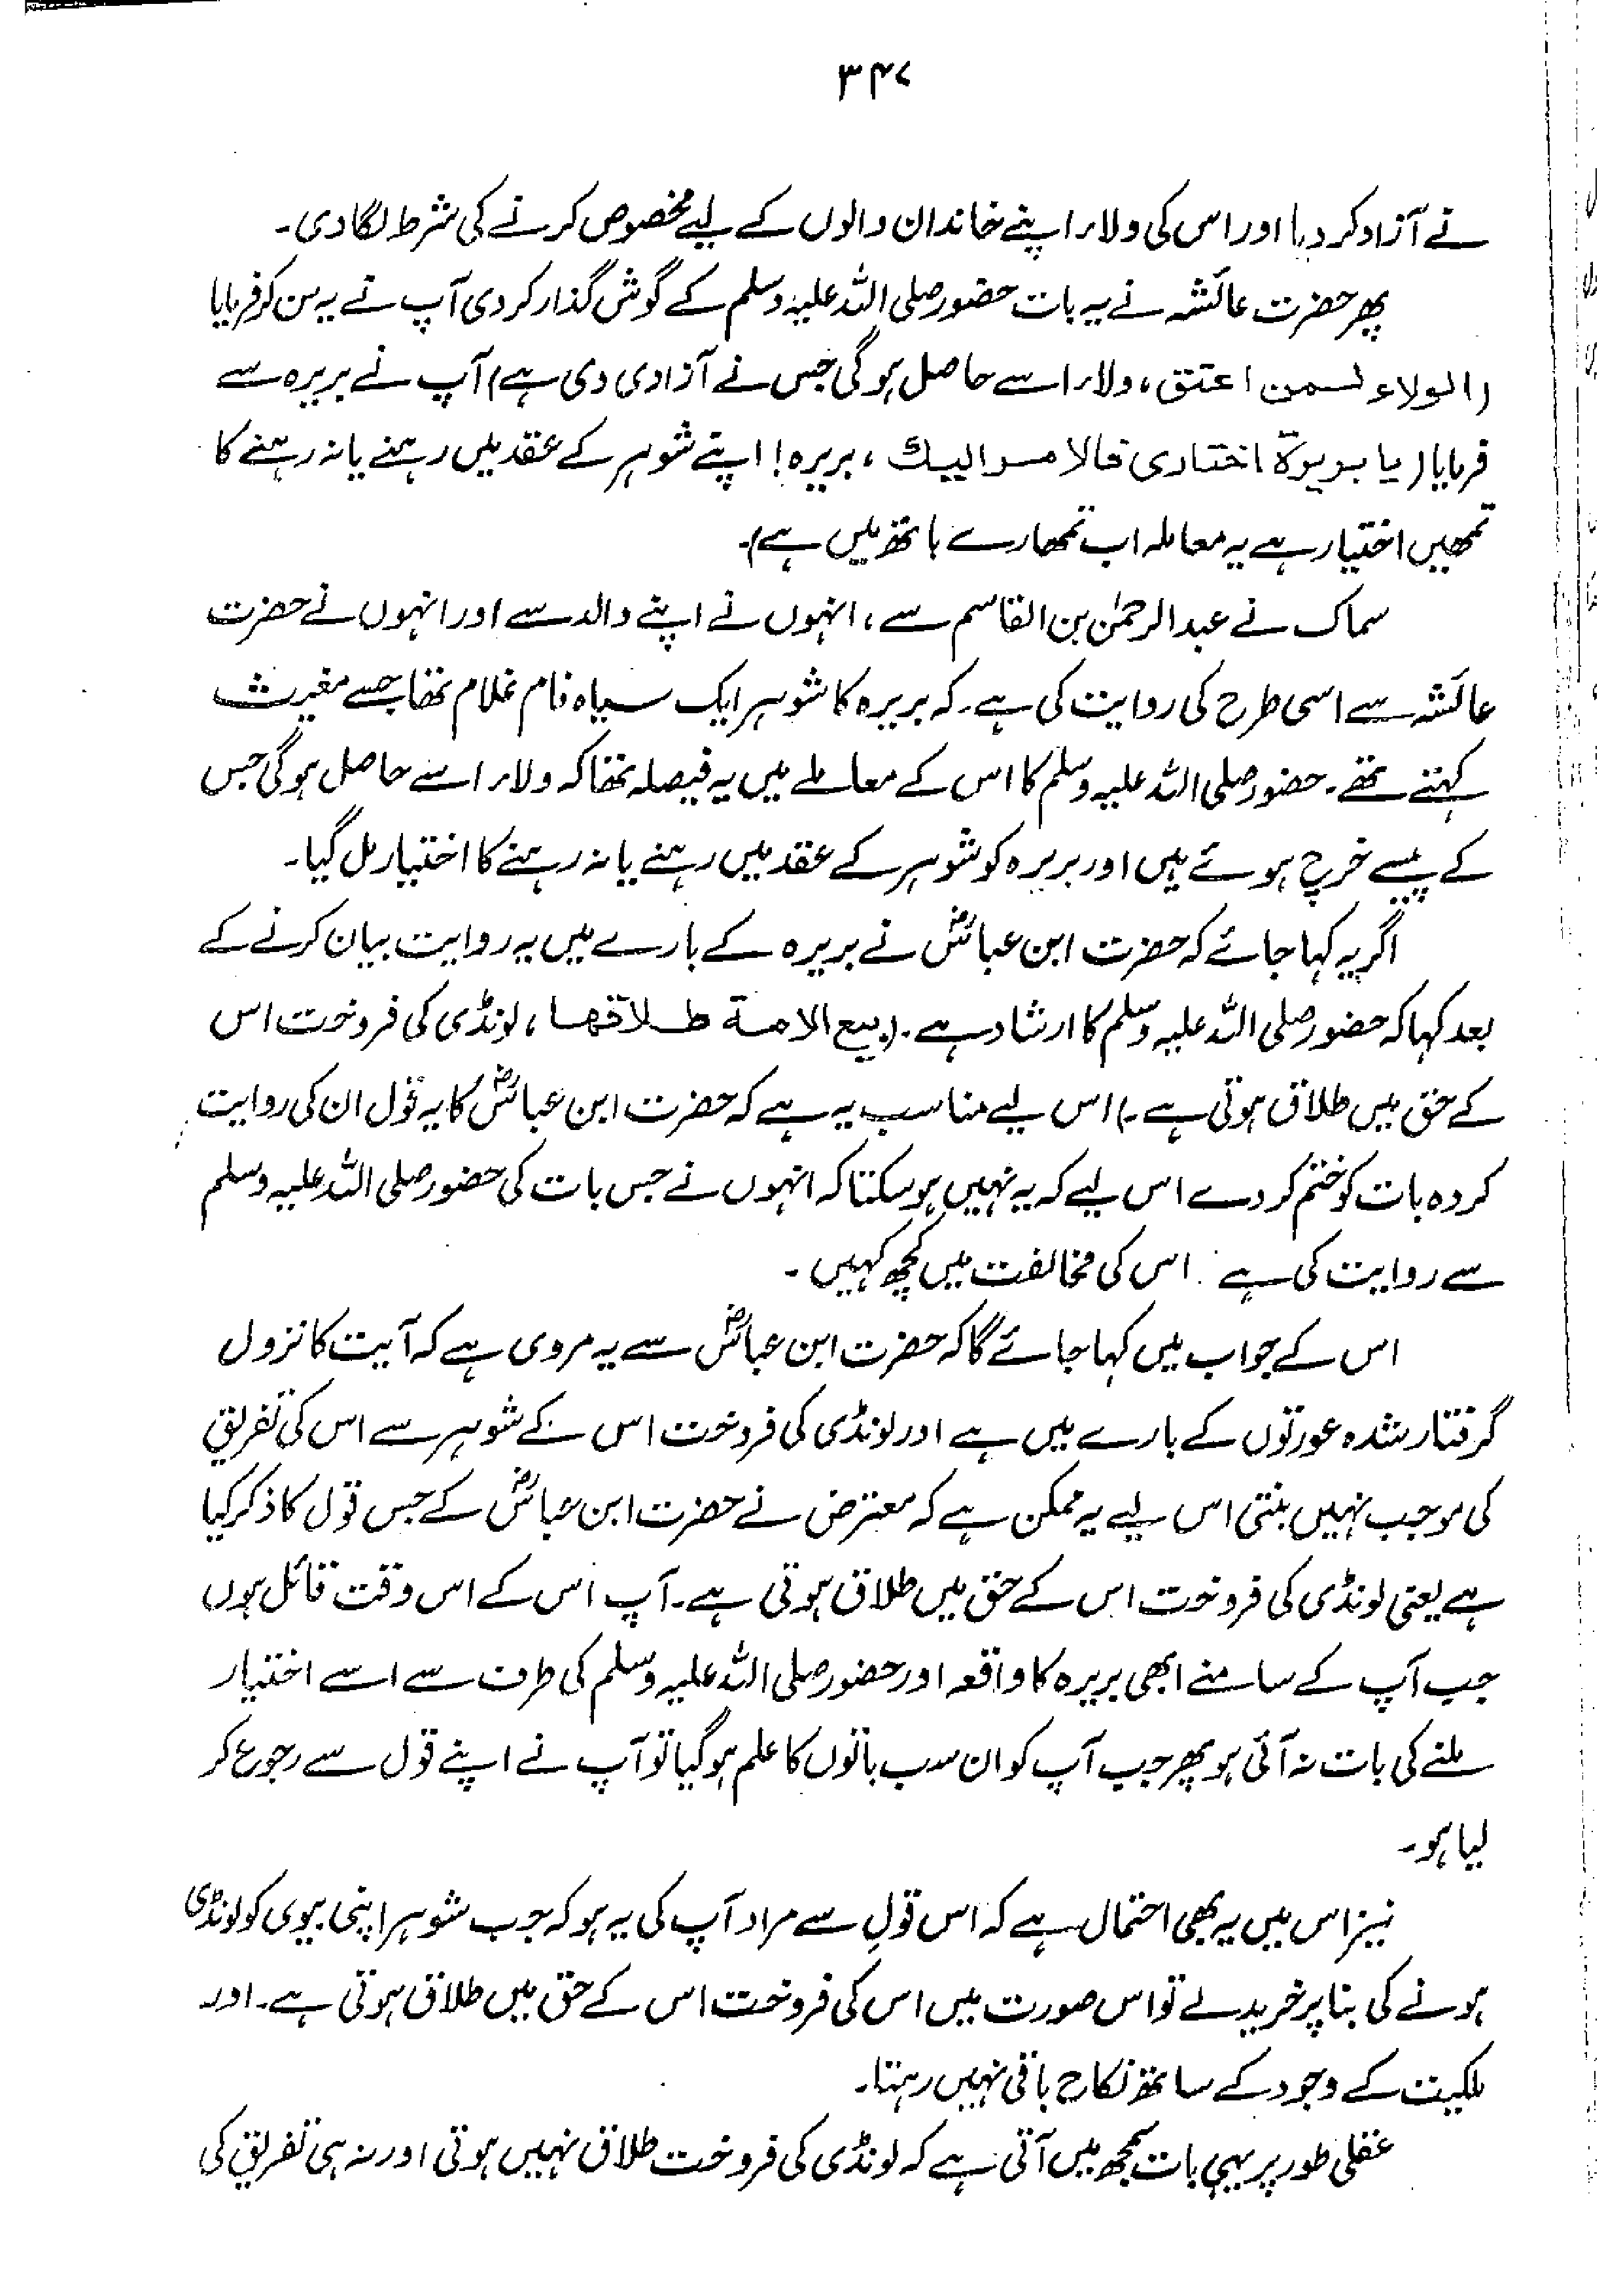 ۳۴۷
نے آزاد کر دیا اور اس کی ولاء اپنے خاندان والوں کے لیے مخصوص کرنے کی شرط لگا دی۔
پھر حضرت عائشہ نے یہ بات حضور صلی اللہ علیہ وسلم کے گوش گذار کر دی آپ نے یہ سن کر فرمایا
(الولاء لمن اعتق، ولاء اسے حاصل ہوگی جس نے آزادی دی ہے) آپ نے بریرہ سے
فرمایا (یا بریرة اختاری فالامر الیك، بریرہ! اپنے شوہر کے عقد میں رہنے یا نہ رہنے کا
تمھیں اختیار ہے یہ معاملہ اب تمھارے ہاتھ میں ہے)۔
سماک نے عبدالرحمٰن بن القاسم سے، انہوں نے اپنے والد سے اور انہوں نے حضرت
عائشہ سے اسی طرح کی روایت کی ہے۔ کہ بریرہ کا شوہر ایک سیاہ فام غلام تھا جسے مغیث
کہتے تھے۔ حضور صلی اللہ علیہ وسلم کا اس کے معاملے میں یہ فیصلہ تھا کہ ولاء اسے حاصل ہوگی جس
کے پیسے خرچ ہوئے ہیں اور بریرہ کو شوہر کے عقد میں رہنے یا نہ رہنے کا اختیار مل گیا۔
اگر یہ کہا جائے کہ حضرت ابن عباسؓ نے بریرہ کے بارے میں یہ روایت بیان کرنے کے
بعد کہا کہ حضور صلی اللہ علیہ وسلم کا ارشاد ہے۔ (بیع الامة طلاقھا، لونڈی کی فروخت اس
کے حق میں طلاق ہوتی ہے۔) اس لیے مناسب یہ ہے کہ حضرت ابن عباسؓ کا یہ قول ان کی روایت
کردہ بات کو ختم کر دے اس لیے کہ یہ نہیں ہو سکتا کہ انہوں نے جس بات کی حضور صلی اللہ علیہ وسلم
سے روایت کی ہے اس کی مخالفت میں کچھ کہیں۔
اس کے جواب میں کہا جائے گا کہ حضرت ابن عباسؓ سے یہ مروی ہے کہ آیت کا نزول
گرفتار شدہ عورتوں کے بارے میں ہے اور لونڈی کی فروخت اس کے شوہر سے اس کی تفریق
کی موجب نہیں بنتی اس لیے یہ ممکن ہے کہ معترض نے حضرت ابن عباسؓ کے جس قول کا ذکر کیا
ہے یعنی لونڈی کی فروخت اس کے حق میں طلاق ہوتی ہے۔ آپ اس کے اس وقت قائل ہوں
جب آپ کے سامنے ابھی بریرہ کا واقعہ اور حضور صلی اللہ علیہ وسلم کی طرف سے اسے اختیار
ملنے کی بات نہ آئی ہو پھر جب آپ کو ان سب باتوں کا علم ہو گیا تو آپ نے اپنے قول سے رجوع کر
لیا ہو۔
نیز اس میں یہ بھی احتمال ہے کہ اس قول سے مراد آپ کی یہ ہو کہ جب شوہر اپنی بیوی کو لونڈی
ہونے کی بنا پر خرید لے تو اس صورت میں اس کی فروخت اس کے حق میں طلاق ہوتی ہے۔ اور
ملکیت کے وجود کے ساتھ نکاح باقی نہیں رہتا۔
عقلی طور پر یہی بات سمجھ میں آتی ہے کہ لونڈی کی فروخت طلاق نہیں ہوتی اور نہ ہی تفریق کی